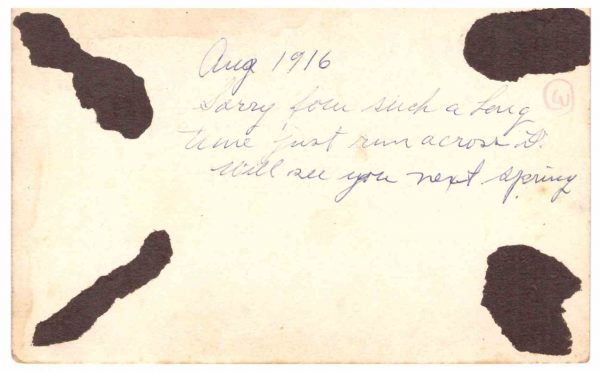 Aug 1916
Sorry four such a Long
time just run across it.
will see you next spring